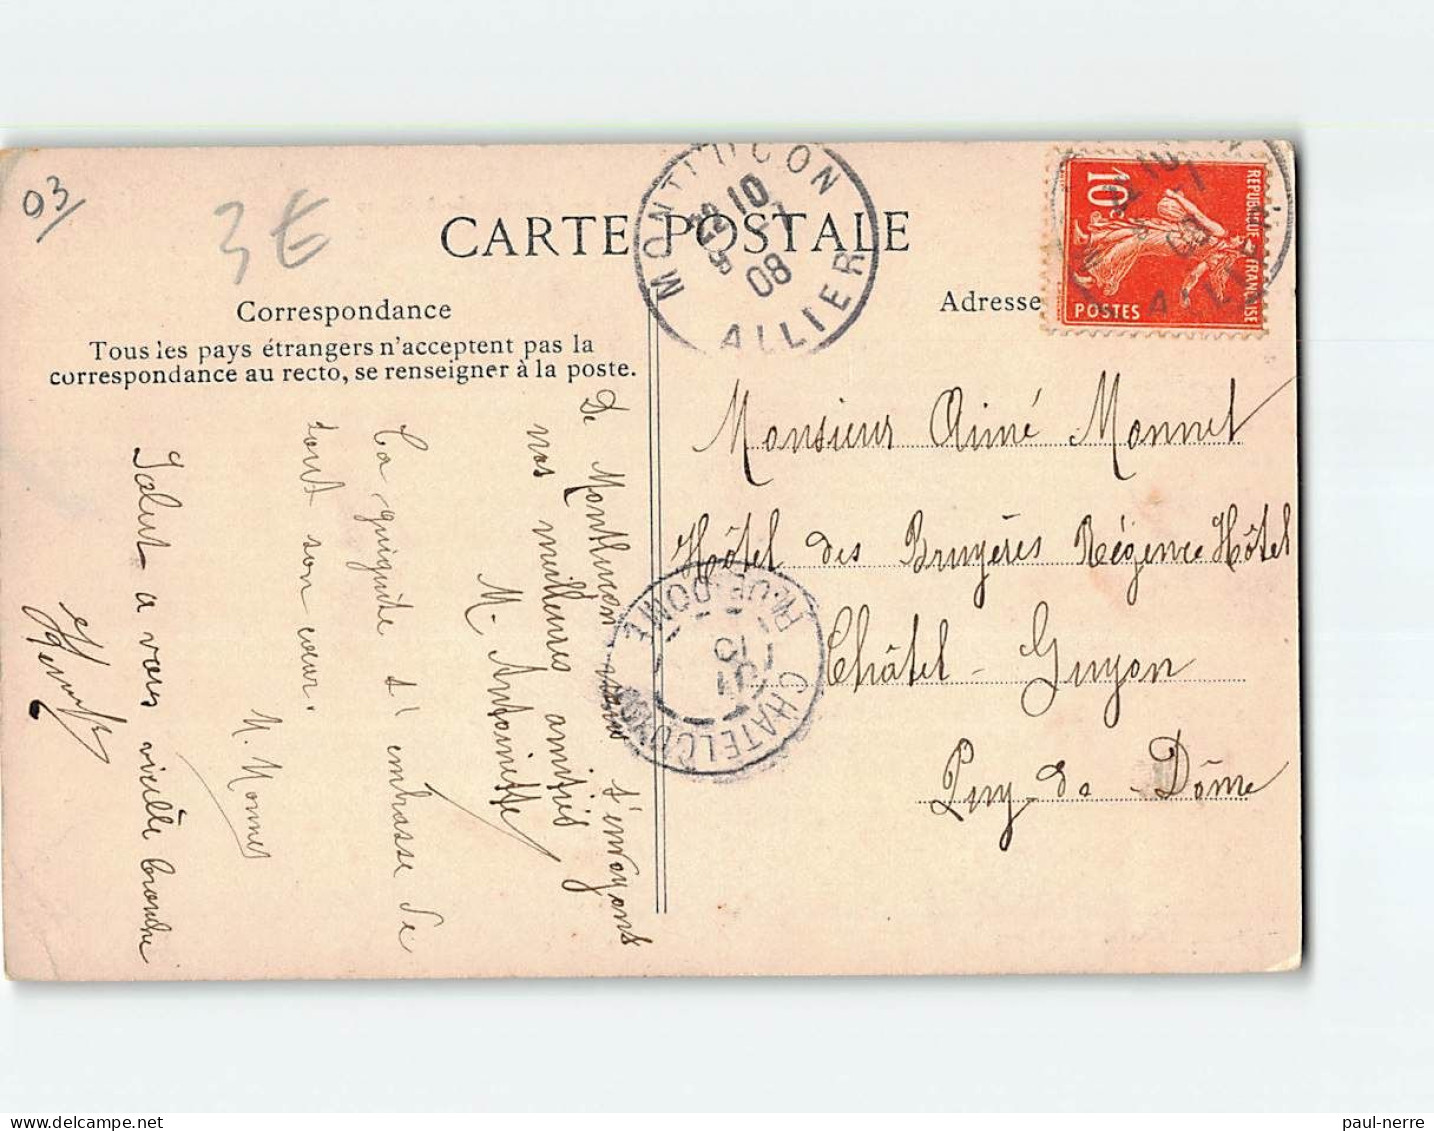 03
3€
CARTE POSTALE
MONTLUCON
22 10
9 - 7
08
ALLIER
10c
REPUBLIQUE FRANÇAISE
POSTES
ALLIER
Correspondance
Tous les pays étrangers n'acceptent pas la
correspondance au recto, se renseigner à la poste.
Adresse
Monsieur Aimé Monnet
Hôtel des Bruyères Régence Hôtel
Châtel-Guyon
Puy-de-Dôme
CHATELGUYON
PUY-DE-DOME
De Monthuçon nous t'envoyons
nos meilleures amitiés
M. Antoinette
Ta guiguite t'embrasse de
tout son cœur.
M. Monnet
Salut a vous vieille branche
paul-nerre